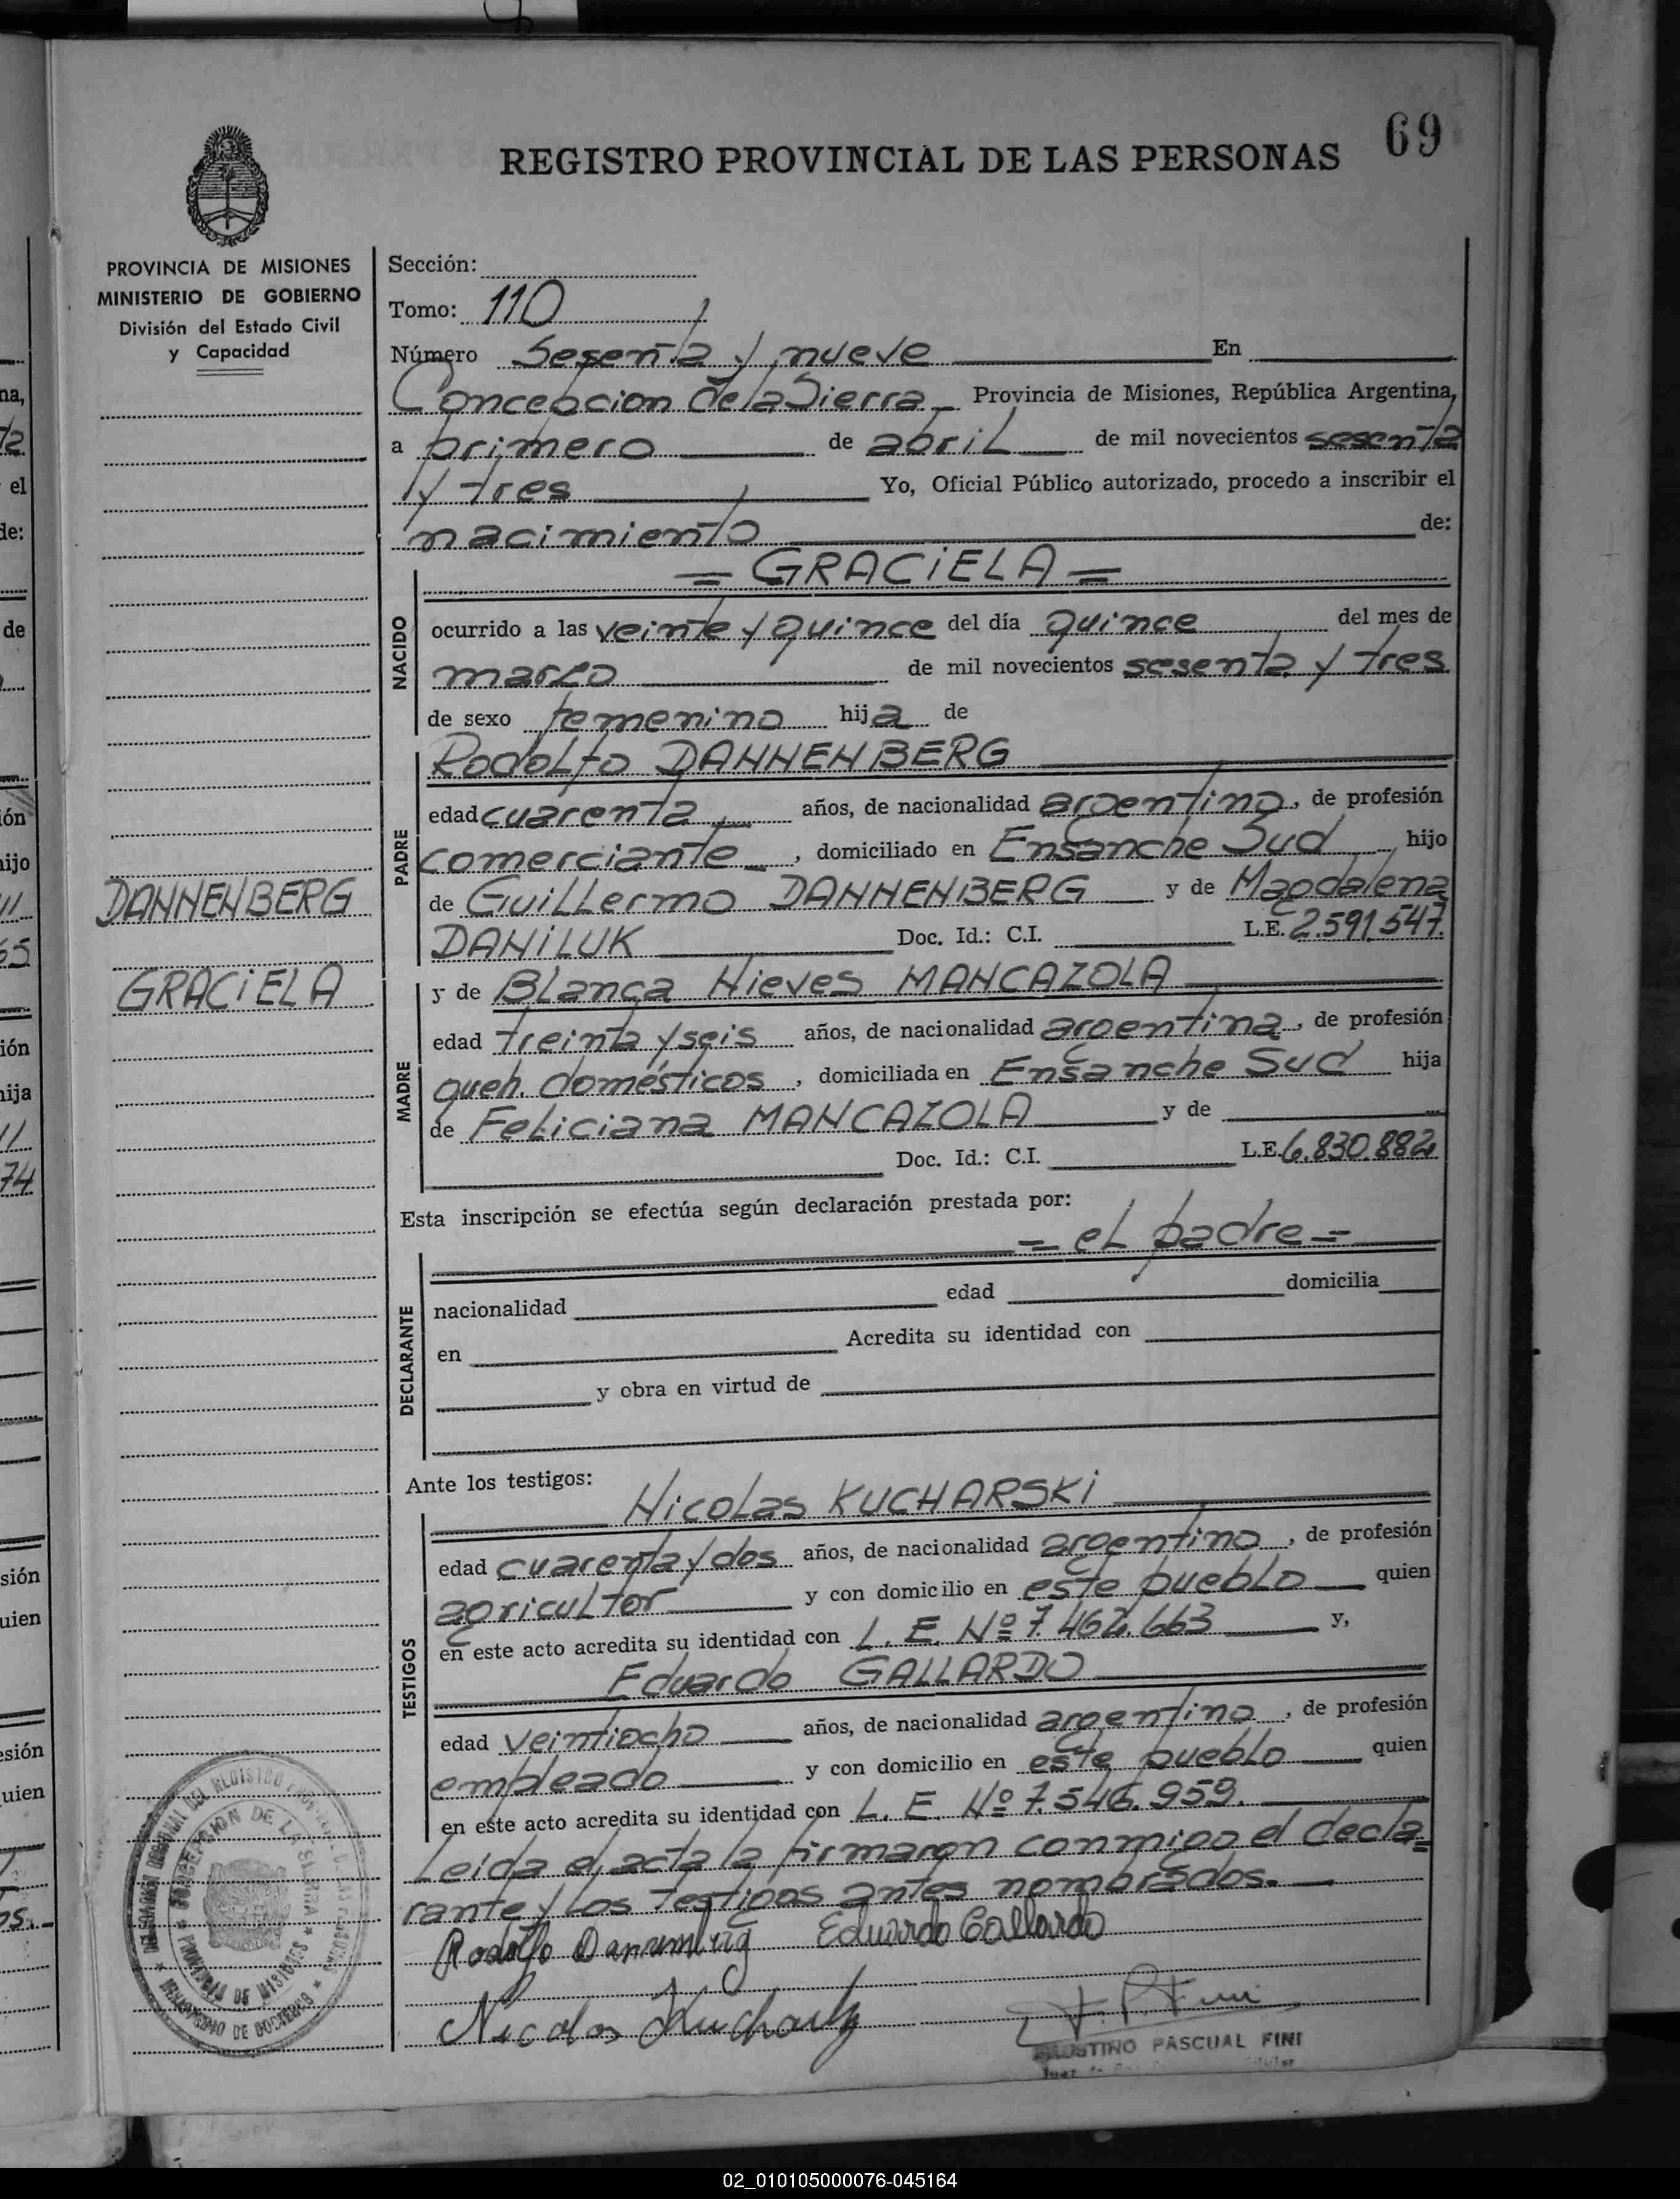 69
REGISTRO PROVINCIAL DE LAS PERSONAS
PROVINCIA DE MISIONES
MINISTERIO DE GOBIERNO
División del Estado Civil
y Capacidad
DANNENBERG
GRACIELA
Sección:
Tomo: 110
Número Sesenta y nueve En
Concepcion de la Sierra Provincia de Misiones, República Argentina,
a primero de abril de mil novecientos sesenta
y tres Yo, Oficial Público autorizado, procedo a inscribir el
nacimiento de:
= GRACIELA =
NACIDO
ocurrido a las veinte y quince del día quince del mes de
marzo de mil novecientos sesenta y tres
de sexo femenino hija de
PADRE
Rodolfo DANNENBERG
edad cuarenta años, de nacionalidad argentino, de profesión
comerciante, domiciliado en Ensanche Sud hijo
de Guillermo DANNENBERG y de Magdalena
DANILUK Doc. Id.: C.I. L.E. 2.591.547.
MADRE
y de Blanca Nieves MANCAZOLA
edad treinta y seis años, de nacionalidad argentina, de profesión
queh. domésticos, domiciliada en Ensanche Sud hija
de Feliciana MANCAZOLA y de
Doc. Id.: C.I. L.E. 6.830.882
Esta inscripción se efectúa según declaración prestada por:
= el padre =
DECLARANTE
nacionalidad edad domicilia
en Acredita su identidad con
y obra en virtud de
Ante los testigos:
TESTIGOS
Nicolas KUCHARSKI
edad cuarenta y dos años, de nacionalidad argentino, de profesión
agricultor y con domicilio en este pueblo quien
en este acto acredita su identidad con L. E. Nº 7.462.663 y,
Eduardo GALLARDO
edad veintiocho años, de nacionalidad argentino, de profesión
empleado y con domicilio en este pueblo quien
en este acto acredita su identidad con L. E. Nº 7.546.959.
Leida el acta la firmaron conmigo el decla=
rante y los testigos antes nombrados.
Rodolfo Dannemberg Eduardo Gallardo
Nicolas Kucharski
F. P. Fini
FAUSTINO PASCUAL FINI
CONCEPCION DE LA SIERRA
PROVINCIA DE MISIONES
MINISTERIO DE GOBIERNO
02_010105000076-045164